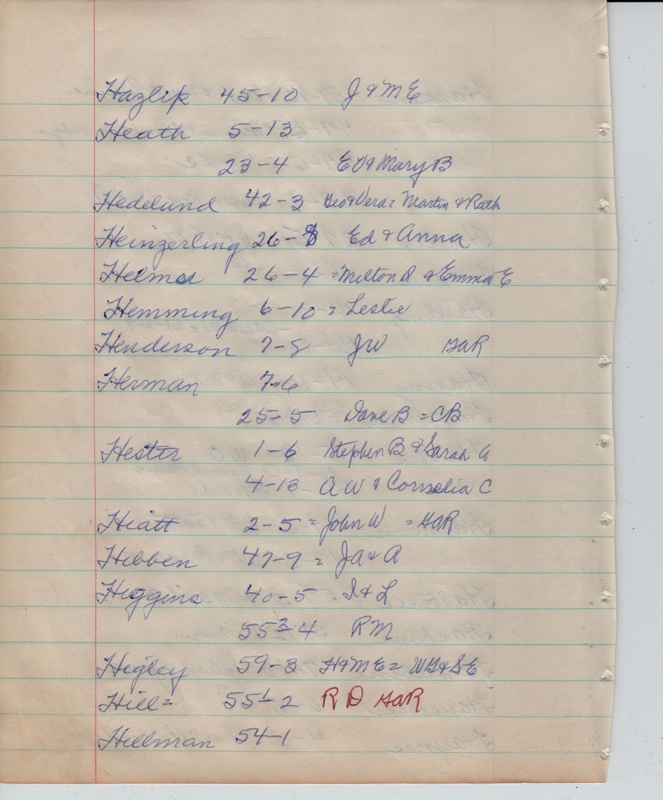 Hazlip 45-10 J & M E
Heath 5-13
23-4 Ed & Mary B
Hedelund 42-3 Geo & Vera = Martin & Ruth
Heinzerling 26-8 Ed & Anna
Helms 26-4 = Milton D & Emma E
Hemming 6-10 = Leslie
Henderson 7-8 JW GAR
Herman 7-6
25-5 Dave B = CB
Hester 1-6 Stephen B & Sarah A
4-13 A W & Cornelia C
Hiatt 2-5 = John W = GAR
Hibben 47-9 = JA & A
Higgins 40-5 I & L
55-4 RM
Higley 59-8 H & M E = WG & SE
Hill = 55-2 R D GAR
Hillman 54-1